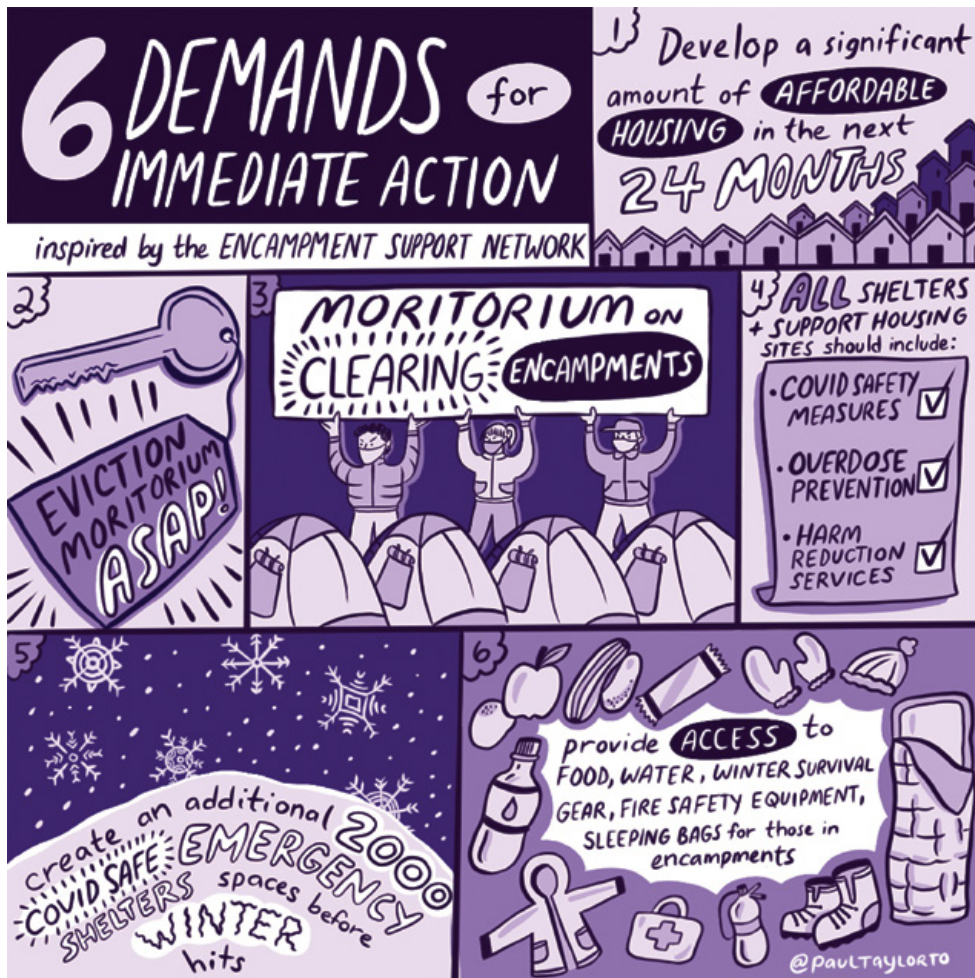 6 DEMANDS for
IMMEDIATE ACTION
inspired by the ENCAMPMENT SUPPORT NETWORK
1
Develop a significant
amount of AFFORDABLE
HOUSING in the next
24 MONTHS
2
EVICTION
MORITORIUM
ASAP!
3
MORITORIUM ON
CLEARING ENCAMPMENTS
4
ALL SHELTERS
+ SUPPORT HOUSING
SITES should include:
• COVID SAFETY
MEASURES
• OVERDOSE
PREVENTION
• HARM
REDUCTION
SERVICES
5
create an additional 2000
COVID SAFE EMERGENCY
SHELTERS spaces before
WINTER
hits
6
provide ACCESS to
FOOD, WATER, WINTER SURVIVAL
GEAR, FIRE SAFETY EQUIPMENT,
SLEEPING BAGS for those in
encampments
@PAULTAYLORTO